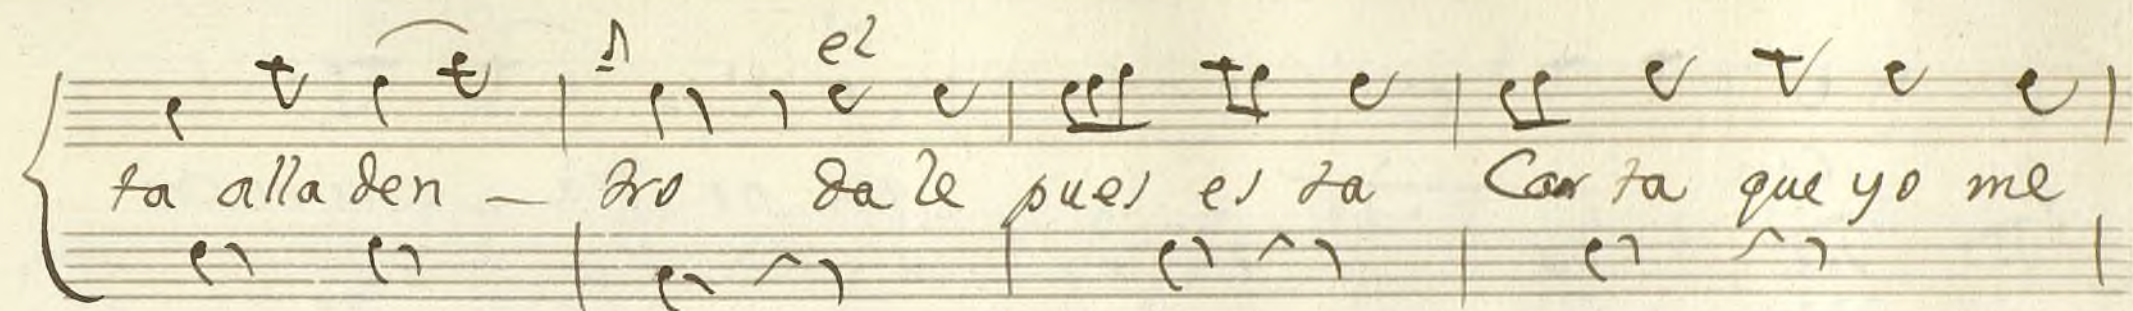 el
ta alla den - tro da le pues es ta Car ta que yo me